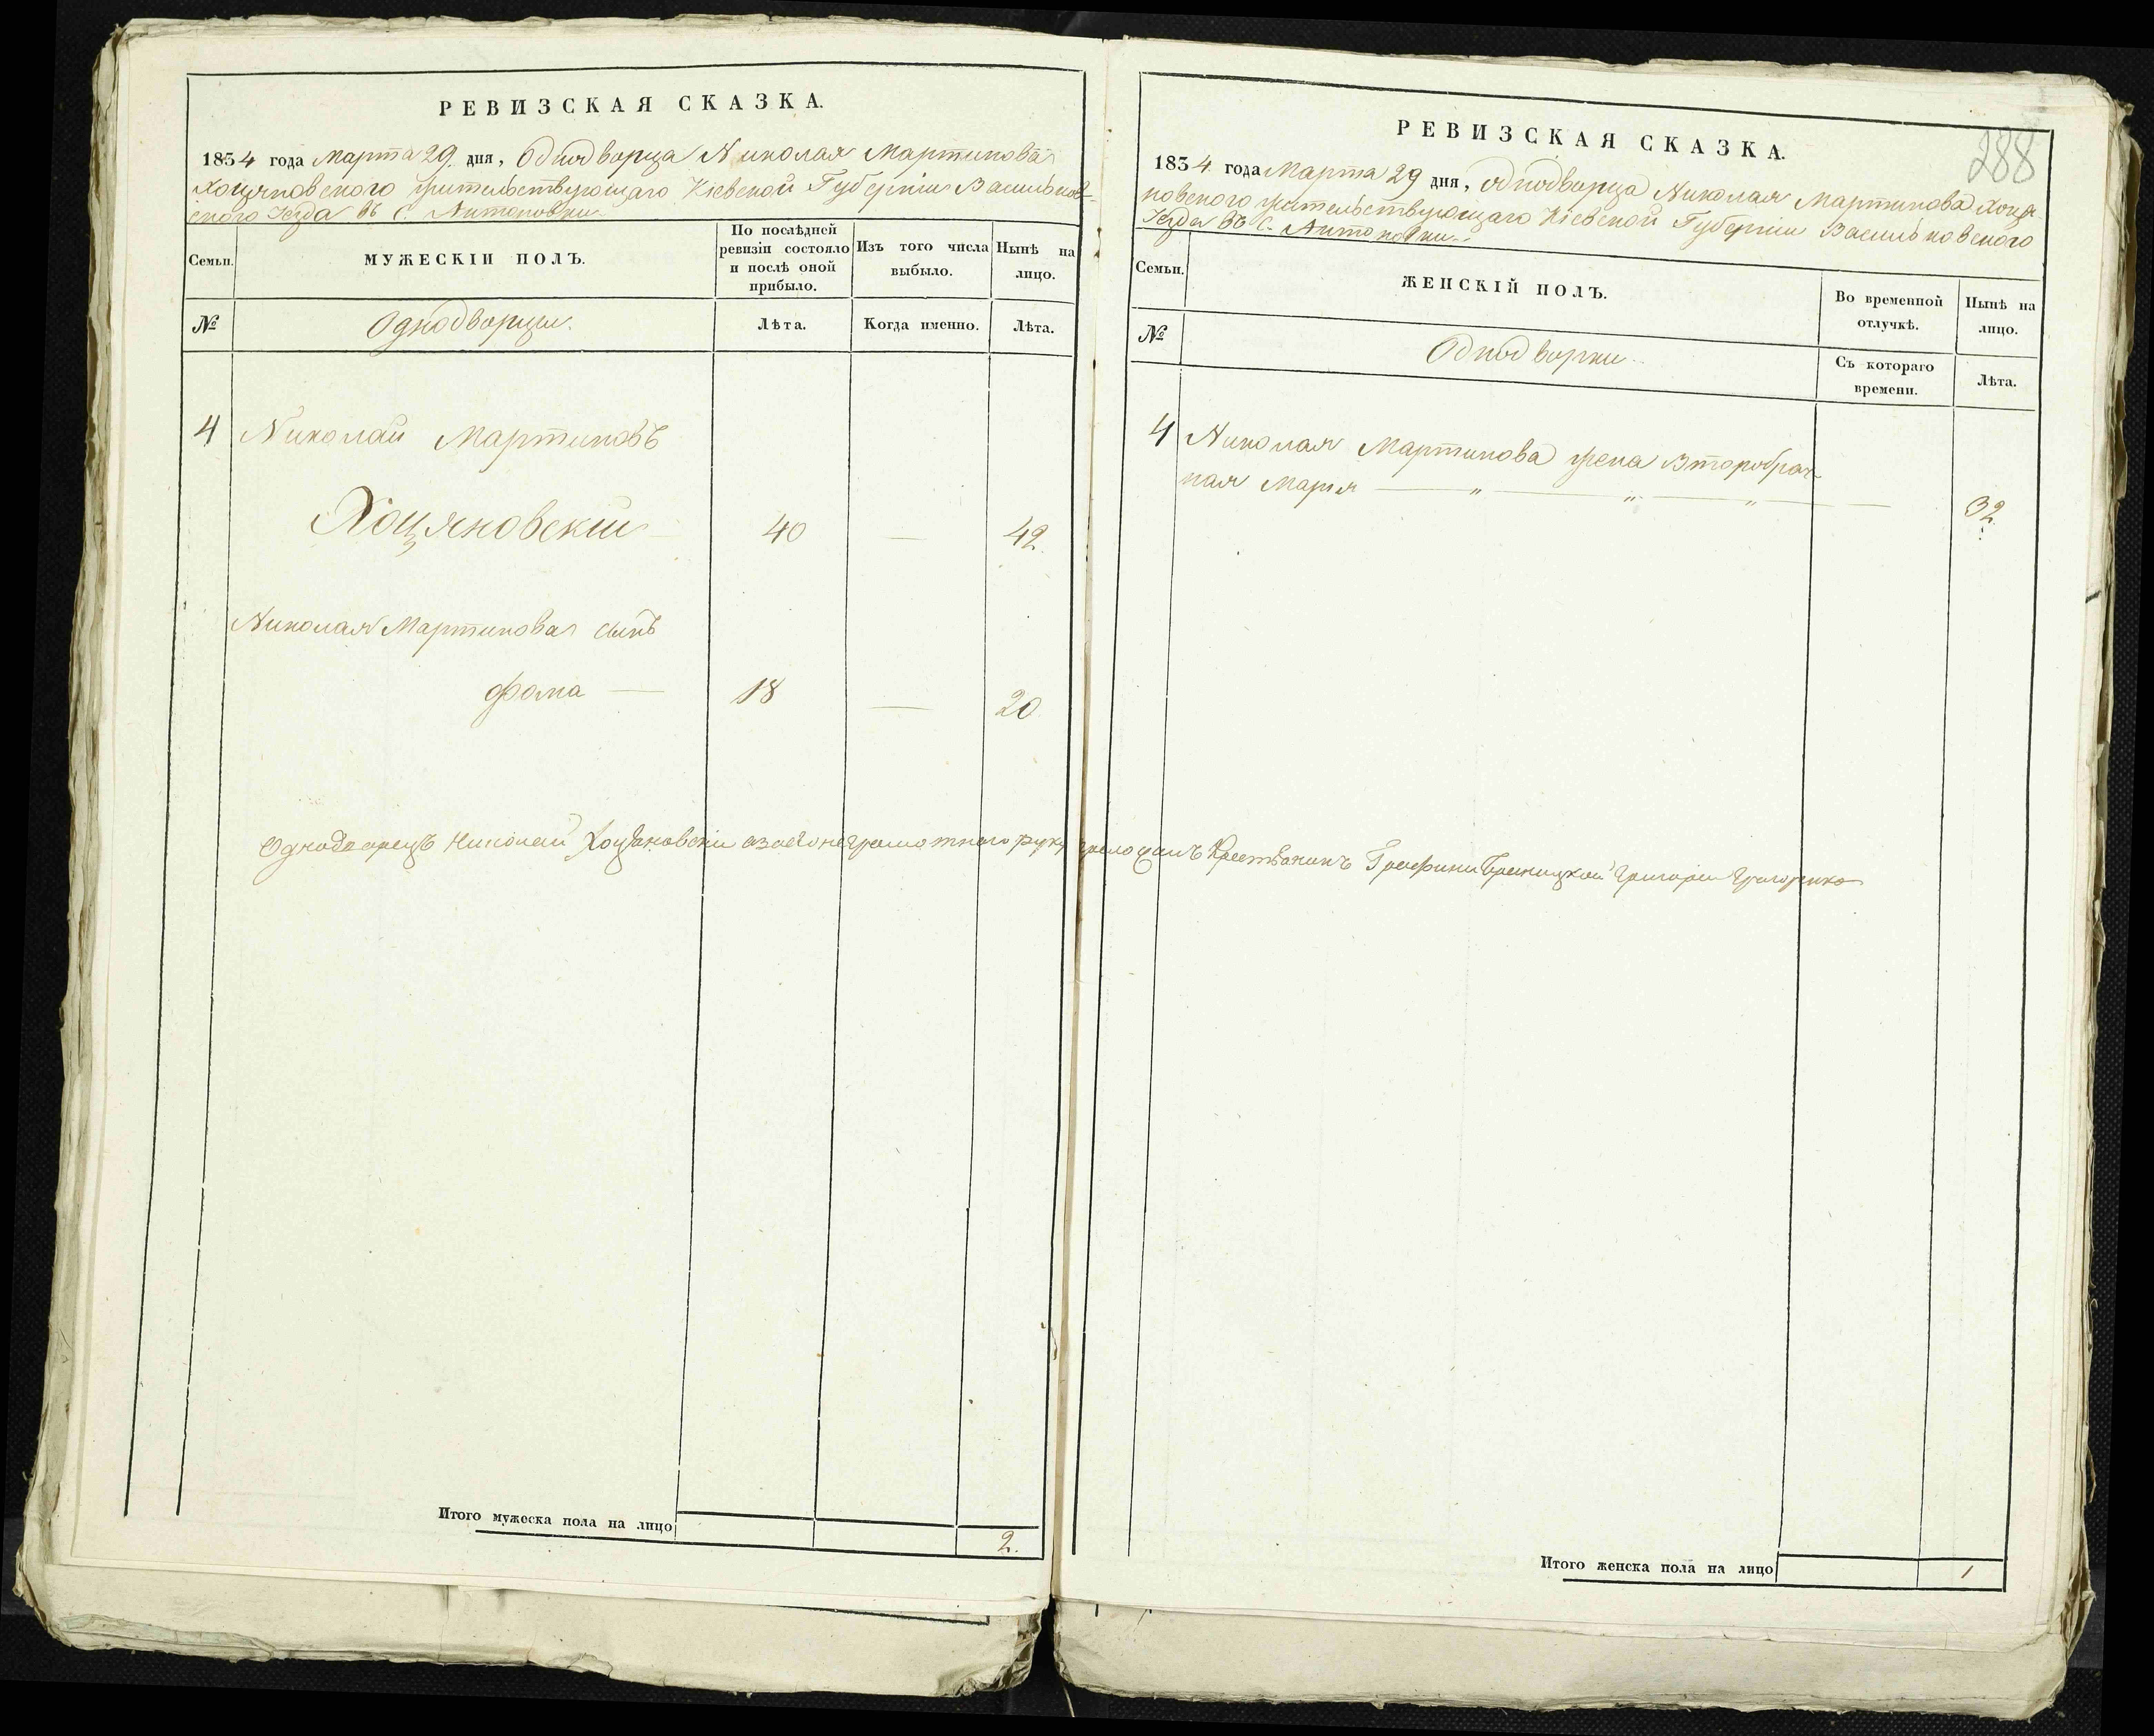 РЕВИЗСКАЯ СКАЗКА.
1834 года Марта 29 дня, Однодворца Николая Мартинова
Хоцяновского жительствующаго Кіевской Губерніи Васильков-
ского Уезда въ С. Антоновки
Семьи.
МУЖЕСКІИ ПОЛЪ.
По послѣдней
ревизіи состояло
и послѣ оной
прибыло.
Изъ того числа
выбыло.
Нынѣ на
лицо.
№
Однодворцы.
Лѣта.
Когда именно.
Лѣта.
4 Николай Мартиновъ
Хоцяновскій 40 — 42.
Николая Мартинова сынъ
Фома — 18 — 20
Однодворецъ Николай Хоцяновскій а за его неграмотного руку приложилъ Крестьянинъ Графини Браницкой Григорій
Итого мужеска пола на лицо 2.
288
РЕВИЗСКАЯ СКАЗКА.
1834 года Марта 29 дня, однодворца Николая Мартинова Хоця-
новского жительствующаго Кіевской Губерніи Васильковского
Уезда въ С. Антоновки
Семьи.
ЖЕНСКІЙ ПОЛЪ.
Во временной
отлучкѣ.
Нынѣ на
лицо.
№
Однодворки
Съ котораго
времени.
Лѣта.
4 Николая Мартинова жена Второбрач-
ная Марія — " — " — " — — 32.
Итого женска пола на лицо 1